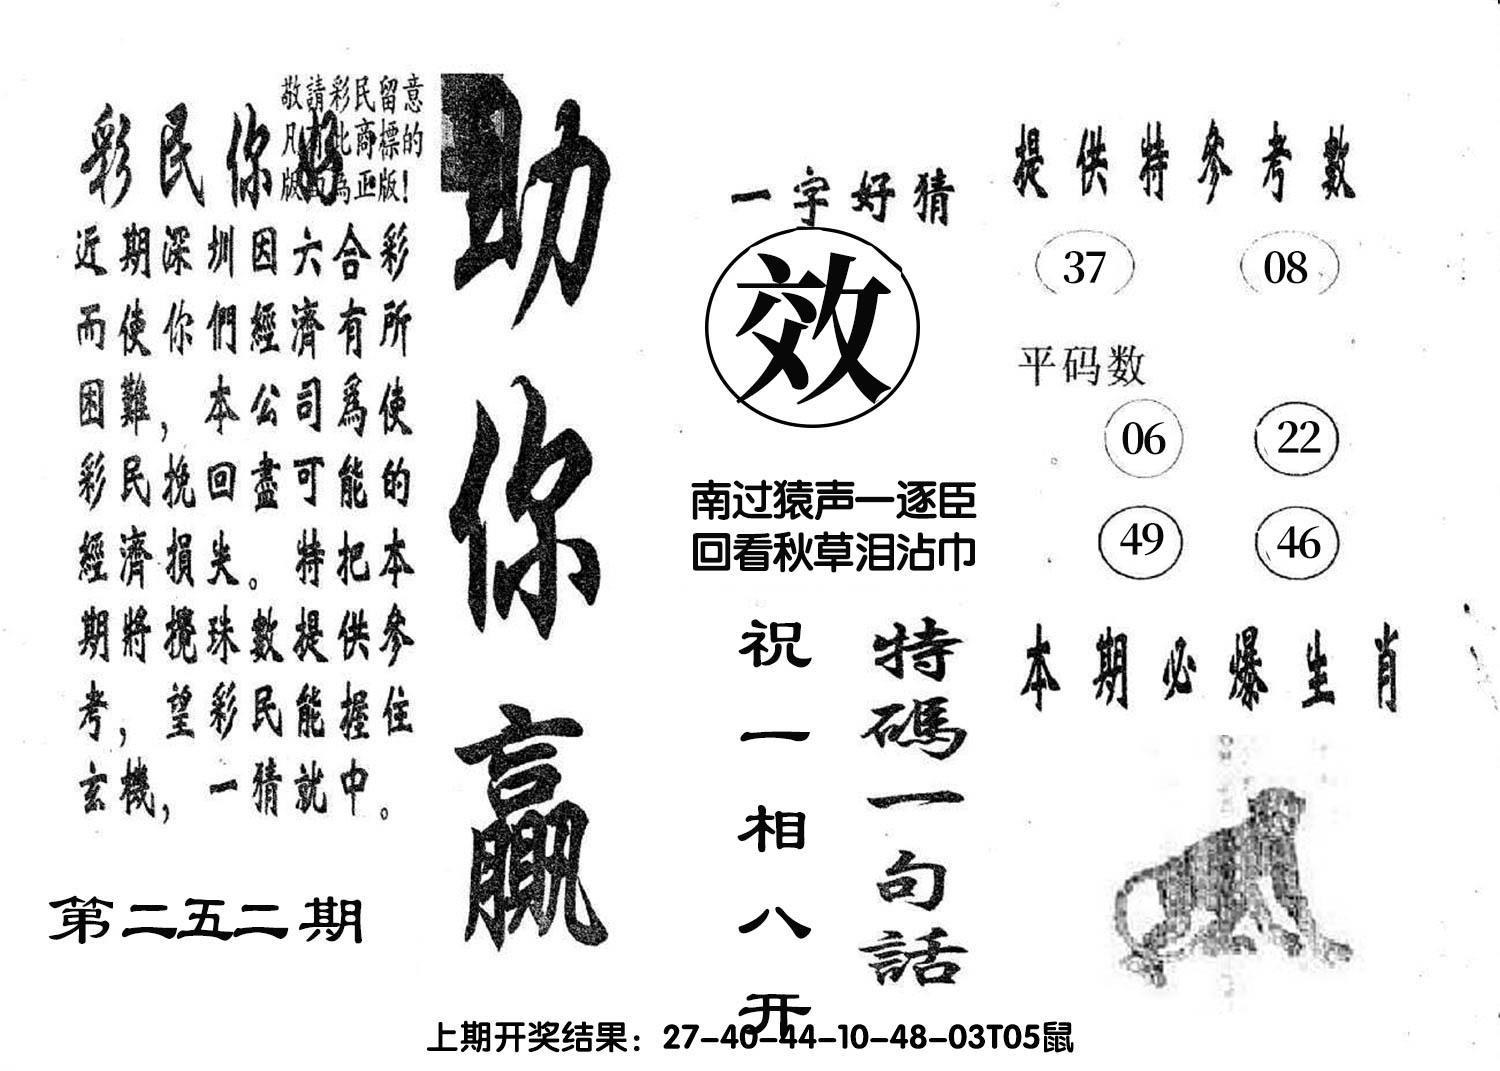 敬請彩民留意
凡有此商標的
版面為正版！
彩民你好
近期深圳因六合彩
而使你們經濟有所
困難，本公司為使
彩民挽回盡可能的
經濟損失。特把本
期將攪珠數提供參
考，望彩民能握住
玄機，一猜就中。
第二五二期
助你贏
一字好猜
效
南过猿声一逐臣
回看秋草泪沾巾
特碼一句話
祝一相八开
提供特參考數
37 08
平码数
06 22
49 46
本期必爆生肖
上期开奖结果：27-40-44-10-48-03T05鼠